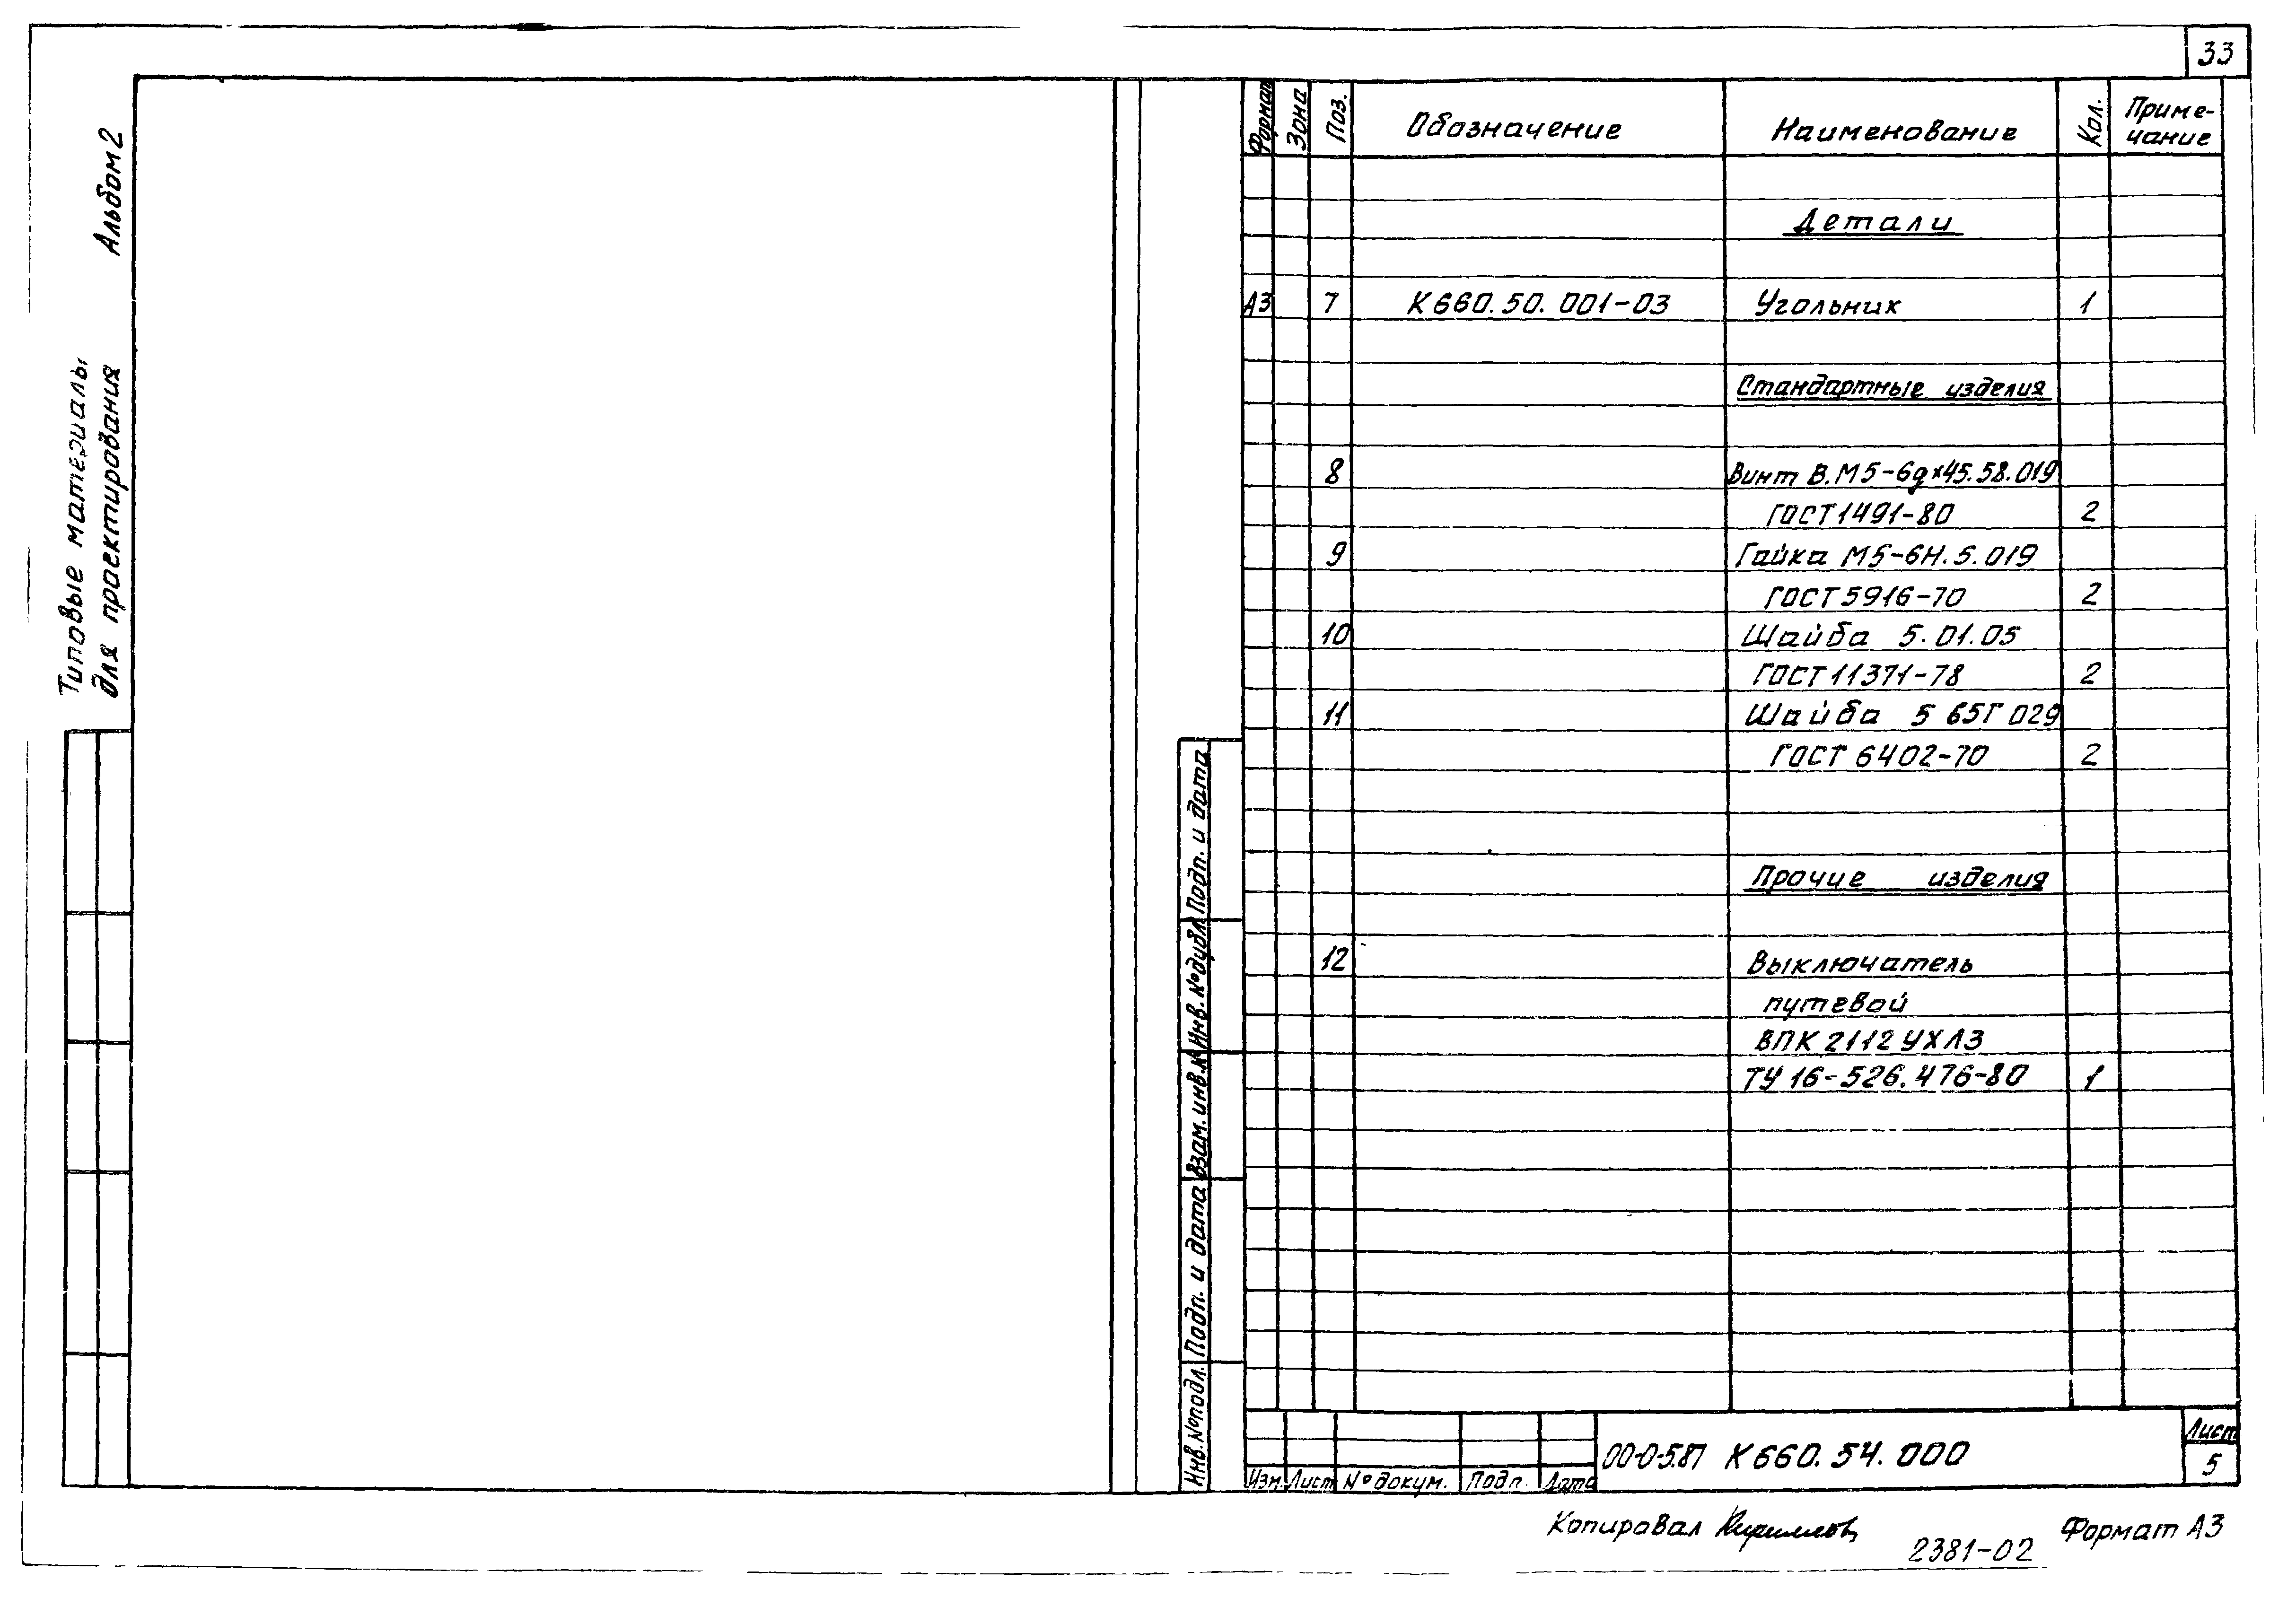 33
Альбом 2
Типовые материалы
для проектирования
Формат Зона Поз. Обозначение Наименование Кол. Приме-
чание
Детали
А3 7 К660.50.001-03 Угольник 1
Стандартные изделия
8 Винт В.М5-6gх45.58.019
ГОСТ 1491-80 2
9 Гайка М5-6Н.5.019
ГОСТ 5916-70 2
10 Шайба 5.01.05
ГОСТ 11371-78 2
11 Шайба 5 65Г 029
ГОСТ 6402-70 2
Прочие изделия
12 Выключатель
путевой
ВПК 2112 УХЛ3
ТУ 16-526.476-80 1
Подп. и дата
Инв. № дубл.
Взам. инв. №
Подп. и дата
Инв. № подл.
Изм. Лист № докум. Подп. Дата
00-0-5.87 К660.54.000
Лист
5
Копировал Кириллов
Формат А3
2381-02